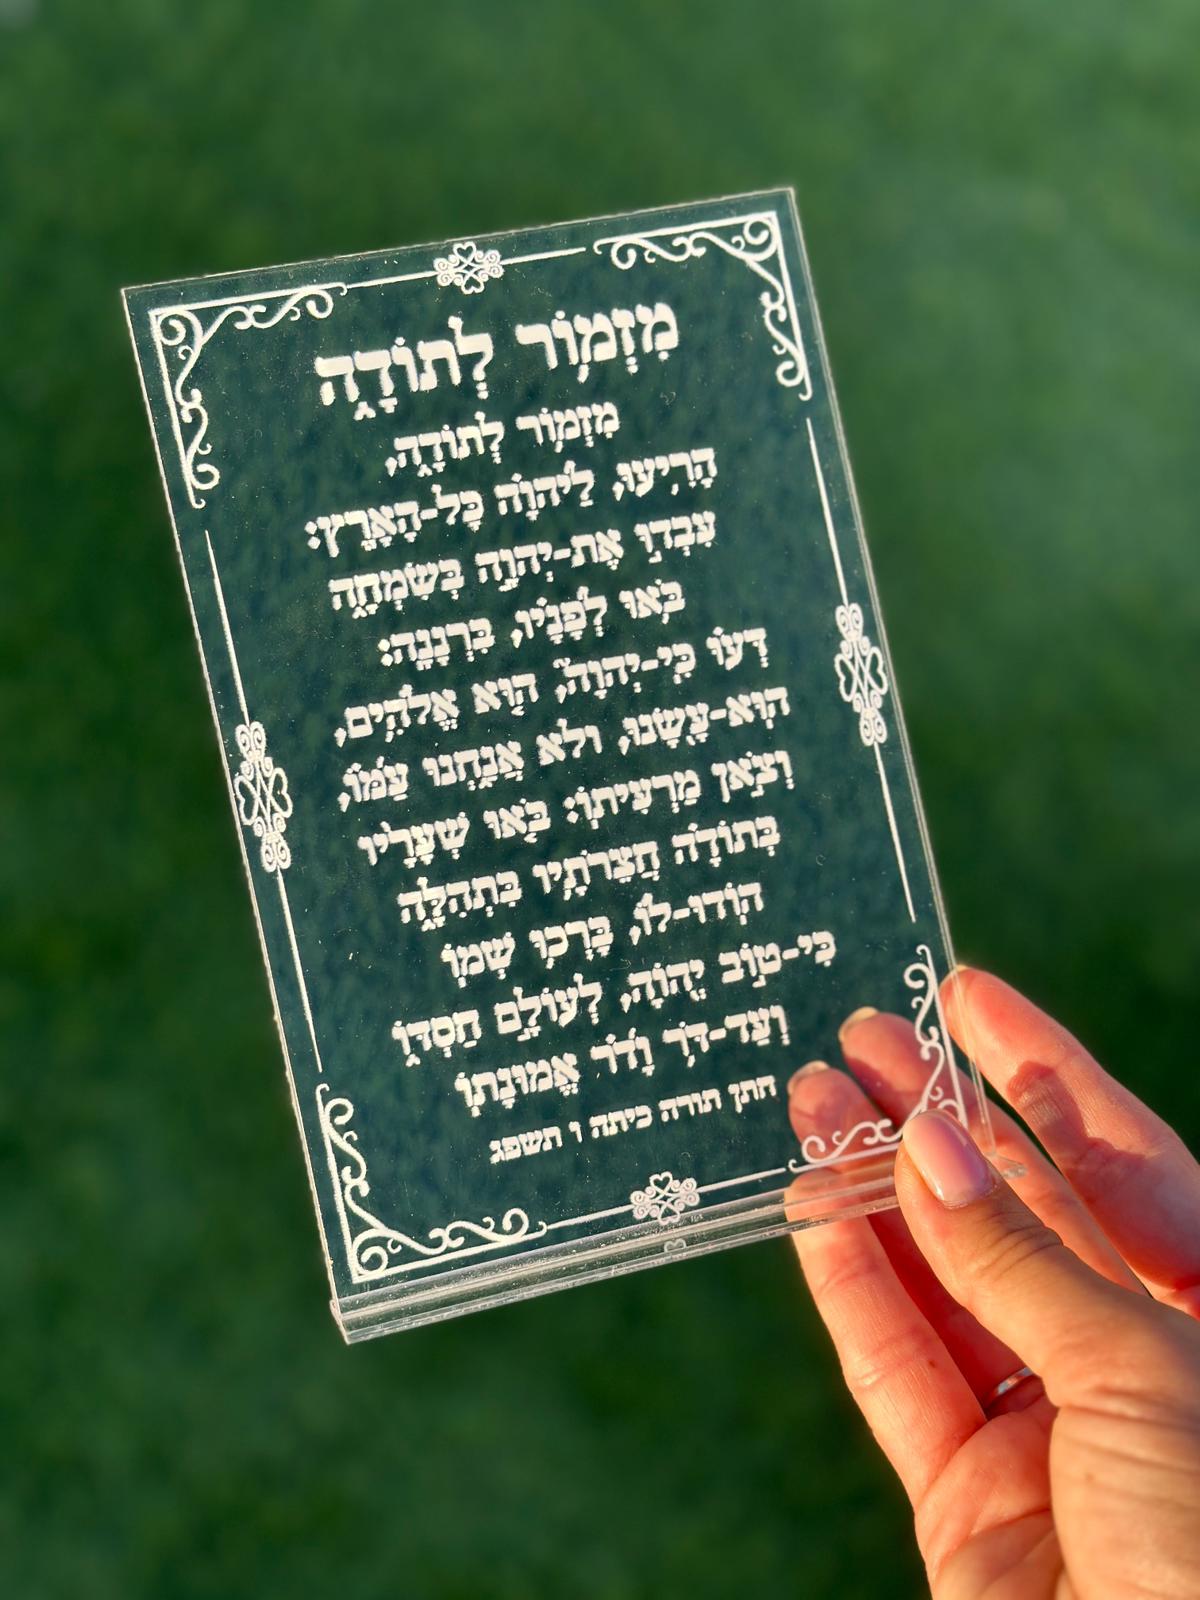 מִזְמ֥וֹר לְתוֹדָ֑ה
מִזְמ֥וֹר לְתוֹדָ֑ה,
הָרִ֥יעוּ, לַ֝יהוָ֗ה כָּל-הָאָֽרֶץ:
עִבְד֣וּ אֶת-יְהוָ֣ה בְּשִׂמְחָ֑ה
בֹּ֥אוּ לְ֝פָנָ֗יו, בִּרְנָנָֽה:
דְּע֗וּ כִּֽי-יְהוָה֮, ה֤וּא אֱלֹ֫הִ֥ים,
הֽוּא-עָ֭שָׂנוּ, ולא אֲנַ֑חְנוּ עַ֝מּ֗וֹ,
וְצֹ֣אן מַרְעִיתֽוֹ: בֹּ֤אוּ שְׁעָרָ֨יו
בְּתוֹדָ֗ה חֲצֵרֹתָ֥יו בִּתְהִלָּ֑ה
הֽוֹדוּ-ל֝֗וֹ, בָּרְכ֥וּ שְׁמֽוֹ
כִּי-ט֣וֹב יְ֭הוָה, לְעוֹלָ֣ם חַסְדּ֑וֹ
וְעַד-דֹּ֥ר וָ֝דֹ֗ר אֱמוּנָתֽוֹ
חתן תורה כיתה ו תשפג